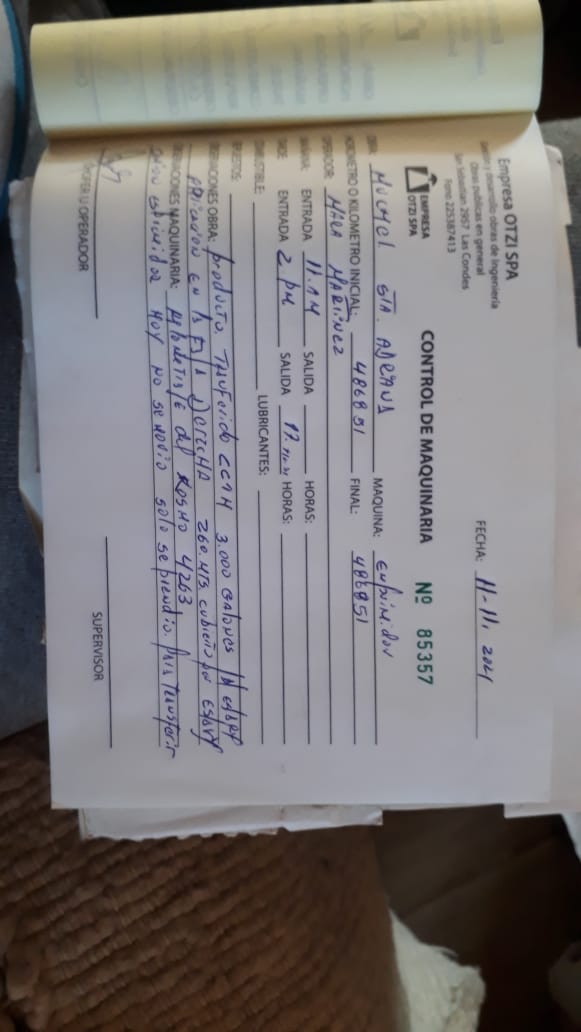 Empresa OTZI SPA
Gestion y desarrollo obras de Ingeniería
Obras publicas en general
San Sebastian 2957 Las Condes
Fono 225387413
FECHA: 11-11. 2021
EMPRESA
OTZI SPA
CONTROL DE MAQUINARIA Nº 85357
OBRA: STA. ADRIANA MAQUINA:
HOROMETRO O KILOMETRO INICIAL: 486851 FINAL: 486851
OPERADOR: MARTINEZ
MAÑANA: ENTRADA 11. AM SALIDA HORAS:
TARDE ENTRADA 2 PM SALIDA 17. HORAS:
COMBUSTIBLE: LUBRICANTES:
REPUESTOS:
OBSERVACIONES OBRA: producto. 3.000 GALONES
EN DERECHA 260. MTS. cubierto por
OBSERVACIONES MAQUINARIA: del 4263
HOY NO se movio solo se prendio. para transferir
CHOFER U OPERADOR
SUPERVISOR